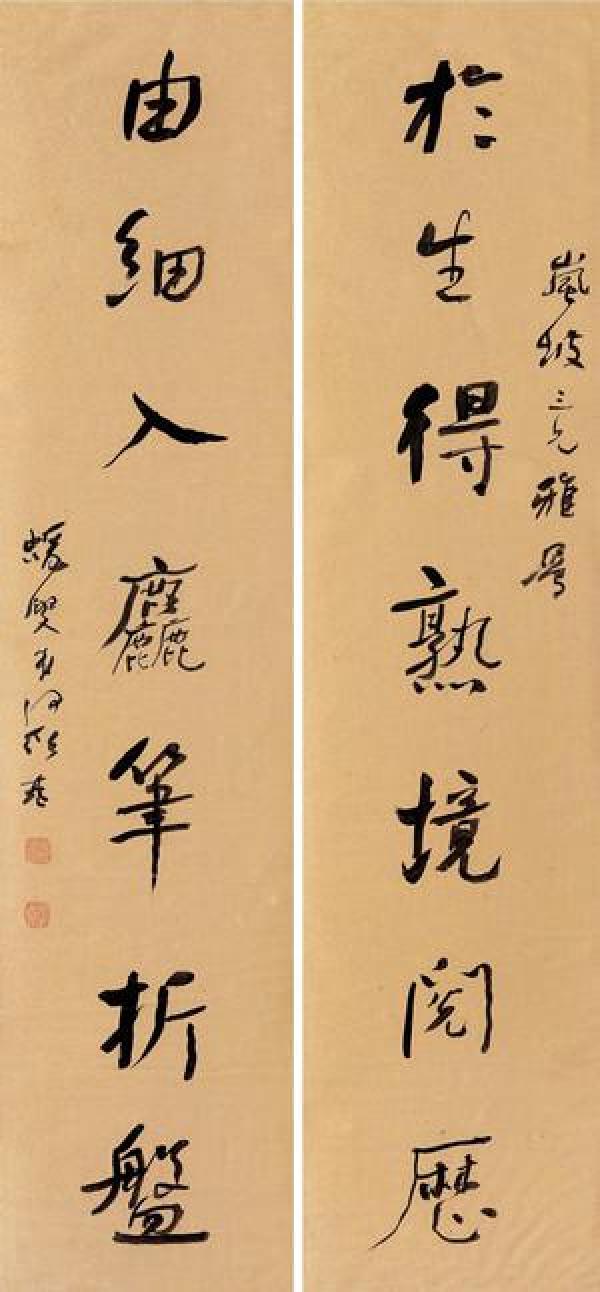 嵐坡三兄雅屬
於生得熟境閱歷
由細入麤筆折盤
蝯叟弟何紹基